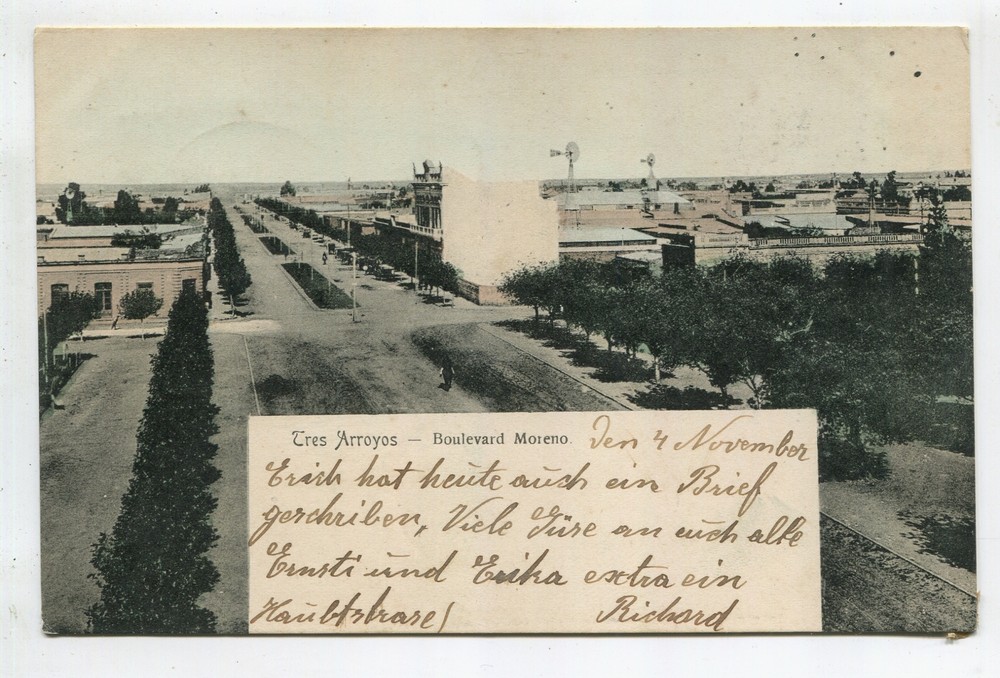 Tres Arroyos — Boulevard Moreno. Den 4 November
Erich hat heute auch ein Brief
geschriben, Viele Güse an euch alle
Ernsti und Erika extra ein
Haubtstrase) Richard